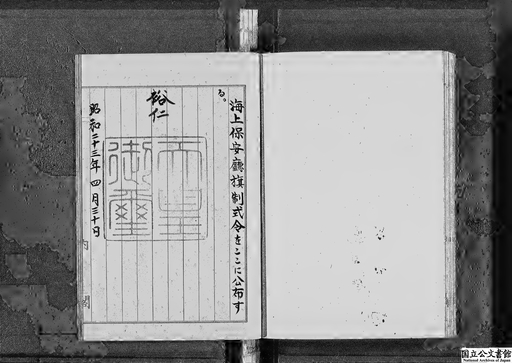 海上保安廳旗制式令をここに公布す
る。
裕仁
天皇
御璽
昭和二十三年四月三十日
内閣
国立公文書館
National Archives of Japan